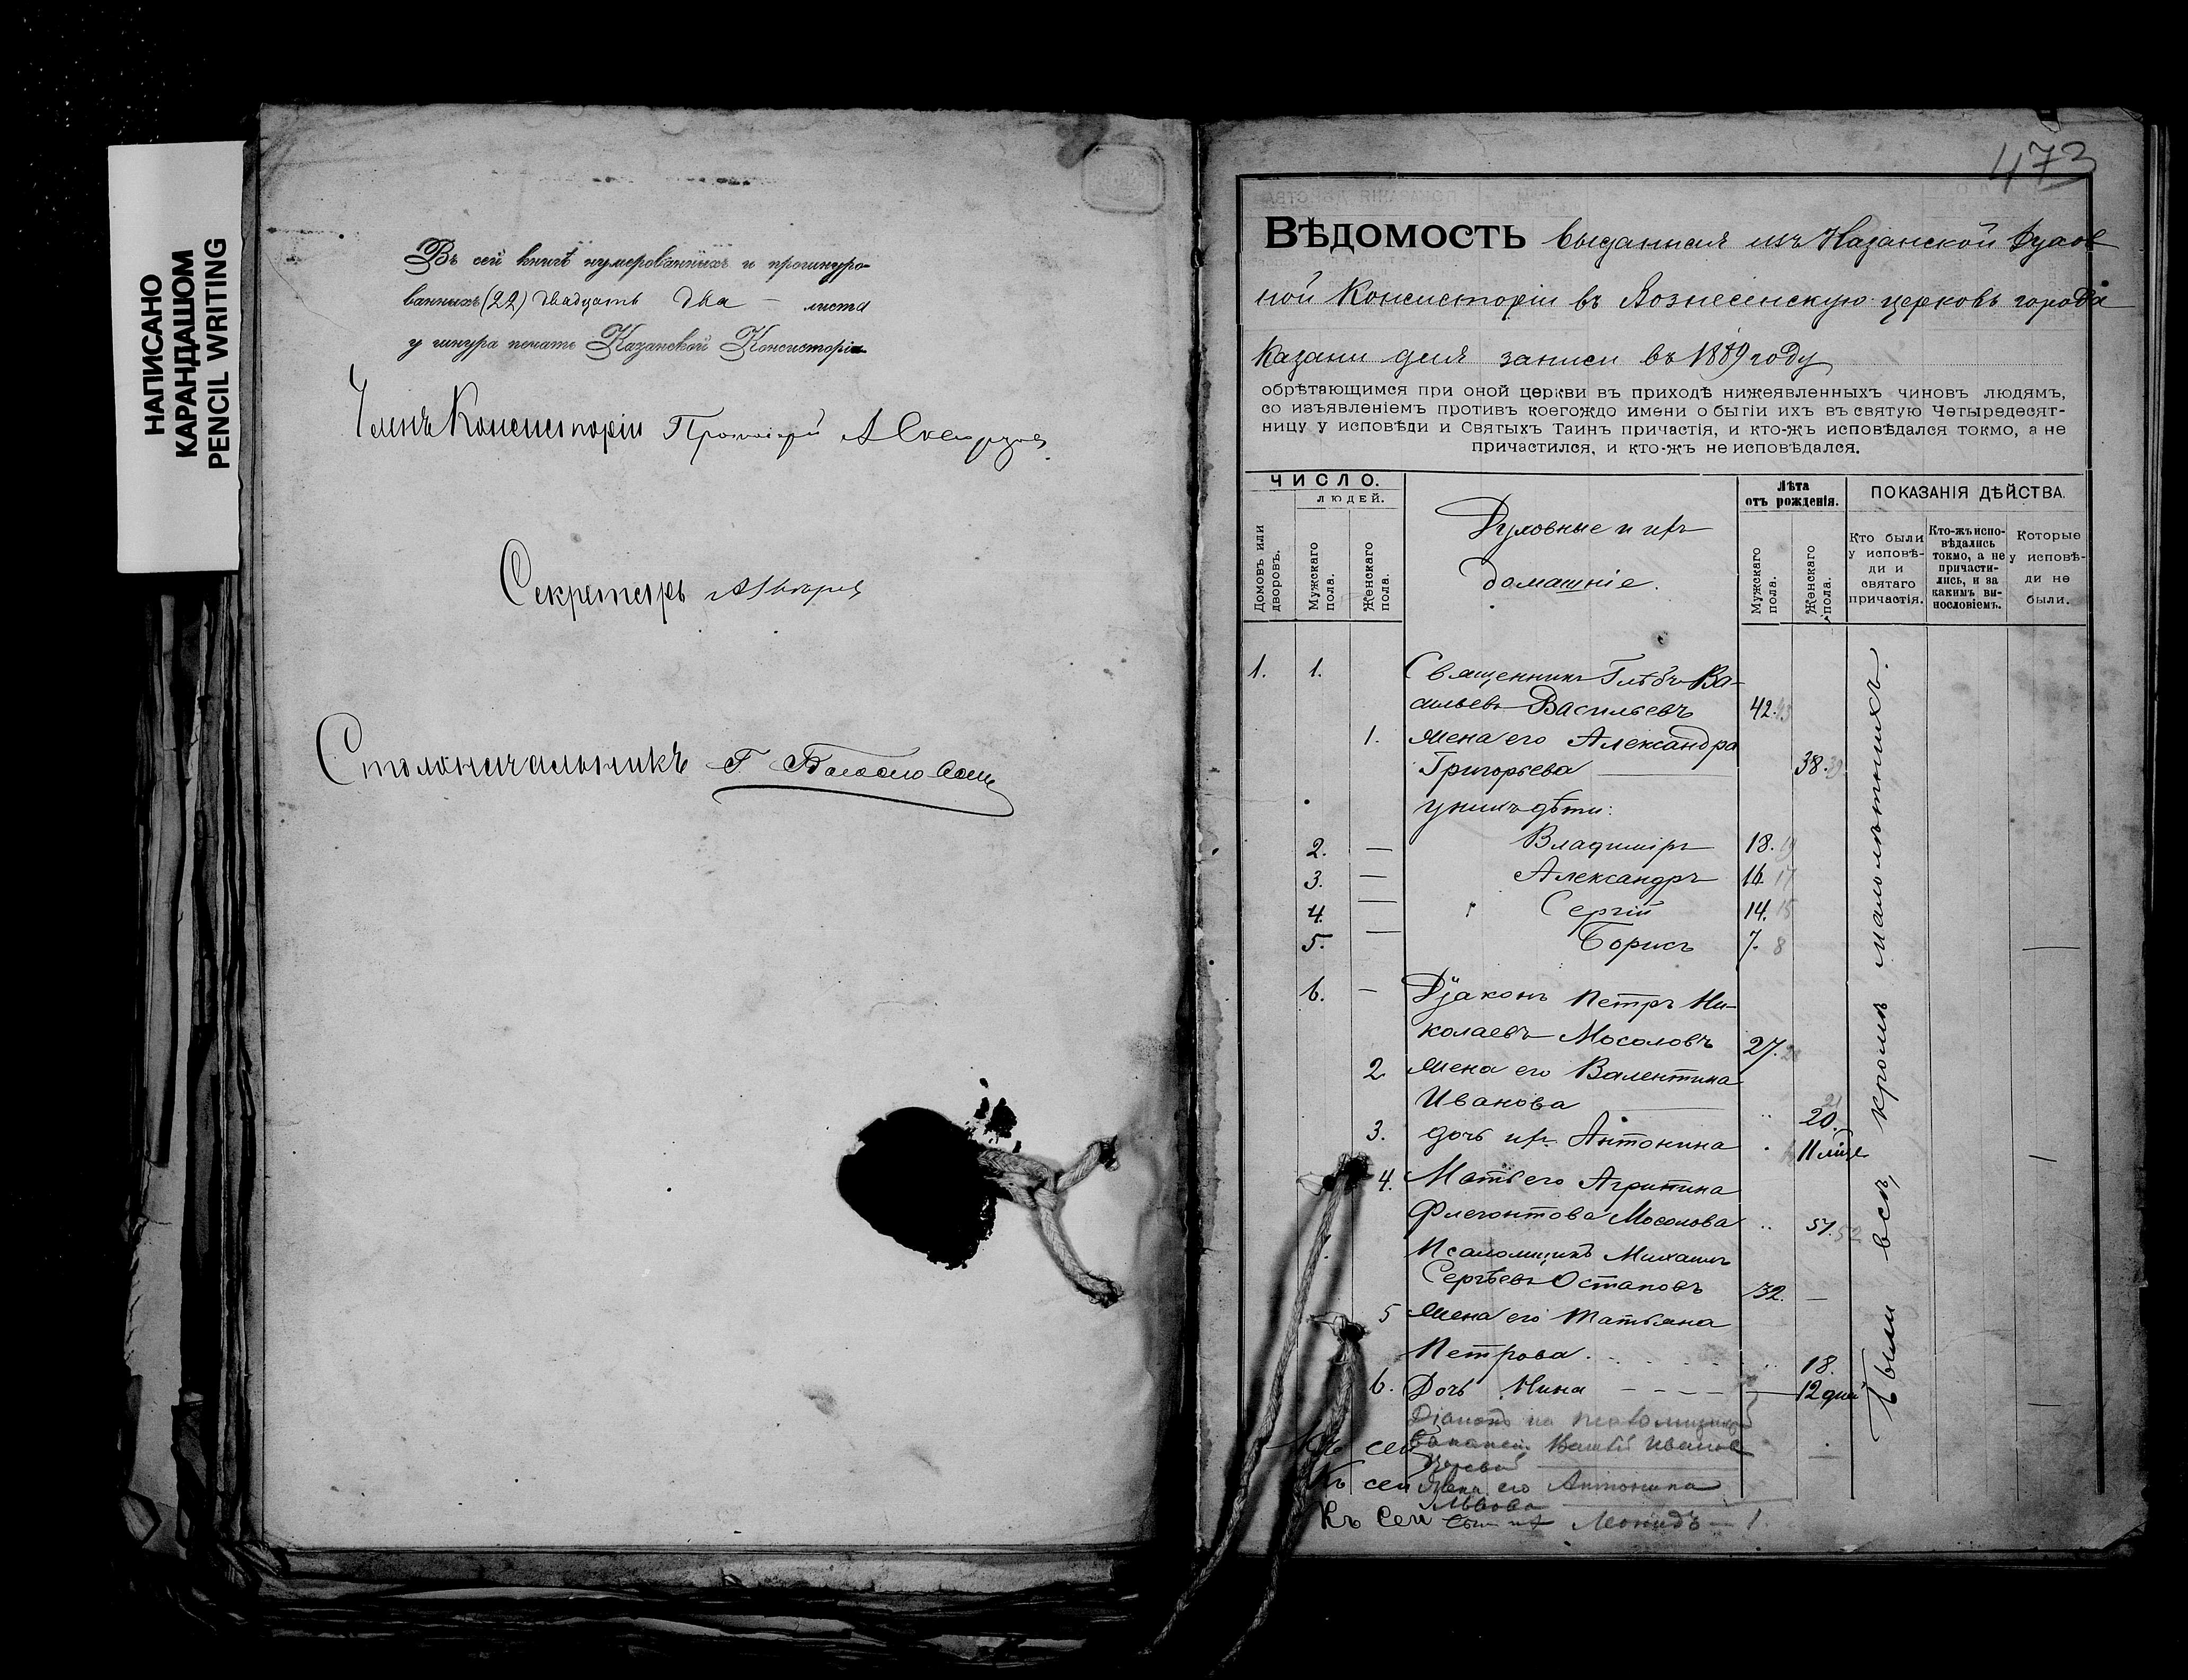 НАПИСАНО
КАРАНДАШОМ
PENCIL WRITING
Въ сей книгѣ нумерованныхъ и прошнуро-
ванныхъ (22) двадцать два — листа
у шнура печать Казанской Консисторіи
Членъ Консисторіи Протоіерей
Секретарь
Столоначальникъ
473
ВѢДОМОСТЬ выданная изъ Казанской Духов
ной Консисторіи въ Вознесенскую церковь города
Казани для записи въ 1889 году
обрѣтающимся при оной церкви въ приходѣ нижеявленныхъ чиновъ людямъ,
со изъявленіемъ противъ коегождо имени о бытіи ихъ въ святую Четыредесят-
ницу у исповѣди и Святыхъ Таинъ причастія, и кто-жъ исповѣдался токмо, а не
причастился, и кто-жъ не исповѣдался.
ЧИСЛО.
ЛЮДЕЙ.
Домовъ или дворовъ.
Мужскаго пола.
Женскаго пола.
Духовные и ихъ
домашніе.
Лѣта
отъ рожденія.
Мужскаго пола.
Женскаго пола.
ПОКАЗАНІЯ ДѢЙСТВА.
Кто были у исповѣ-ди и святаго причастія.
Кто-жъ испо-вѣдались токмо, а не причасти-лись, и за какимъ ви-нословіемъ.
Которые у исповѣ-ди не были.
1. 1. Священникъ Глѣбъ Ва-
сильевъ Васильевъ 42. 43
1. Жена его Александра
Григорьева — 38. 39
у нихъ дѣти:
2. — Владиміръ 18. 19
3. — Александръ 16. 17
4. — Сергій 14. 15
5. — Борисъ 7. 8 —
6. — Діаконъ Петръ Ни-
колаевъ Мосоловъ 27. 28
2 Жена его Валентина
Иванова — 20. 21
3. дочь ихъ Антонина 11 мѣс. —
4. Мать его Агрипина
Флегонтова Мосолова 51. 52
Псаломщикъ Михаилъ
Сергѣевъ Остаповъ 32. —
5 Жена его Татьяна
Петрова. 18.
6. Дочь Нина — 12 дней —
Діаконъ на псаломщицкой
Къ сей вакансіи Иванов
Къ сей Жена его Антонина
Львова
Къ сей сын их Леонидъ — 1.
Были всѣ, кромѣ малолѣтнихъ.